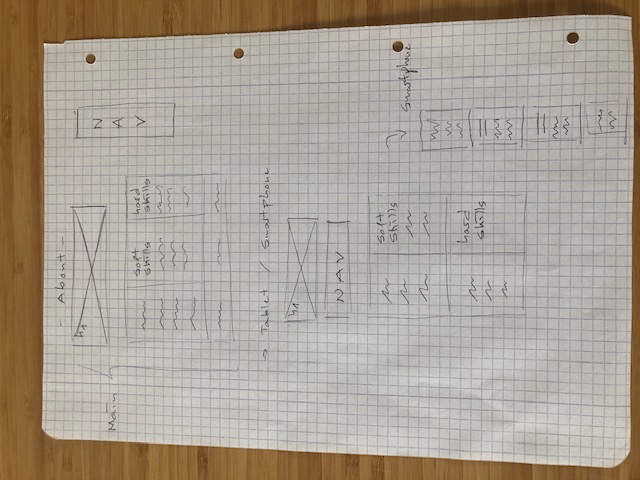 - About -
h1
Main
N
A
V
soft
skills
hard
skills
→ Tablet / Smartphone
h1
NAV
soft
skills
hard
skills
Smartphone